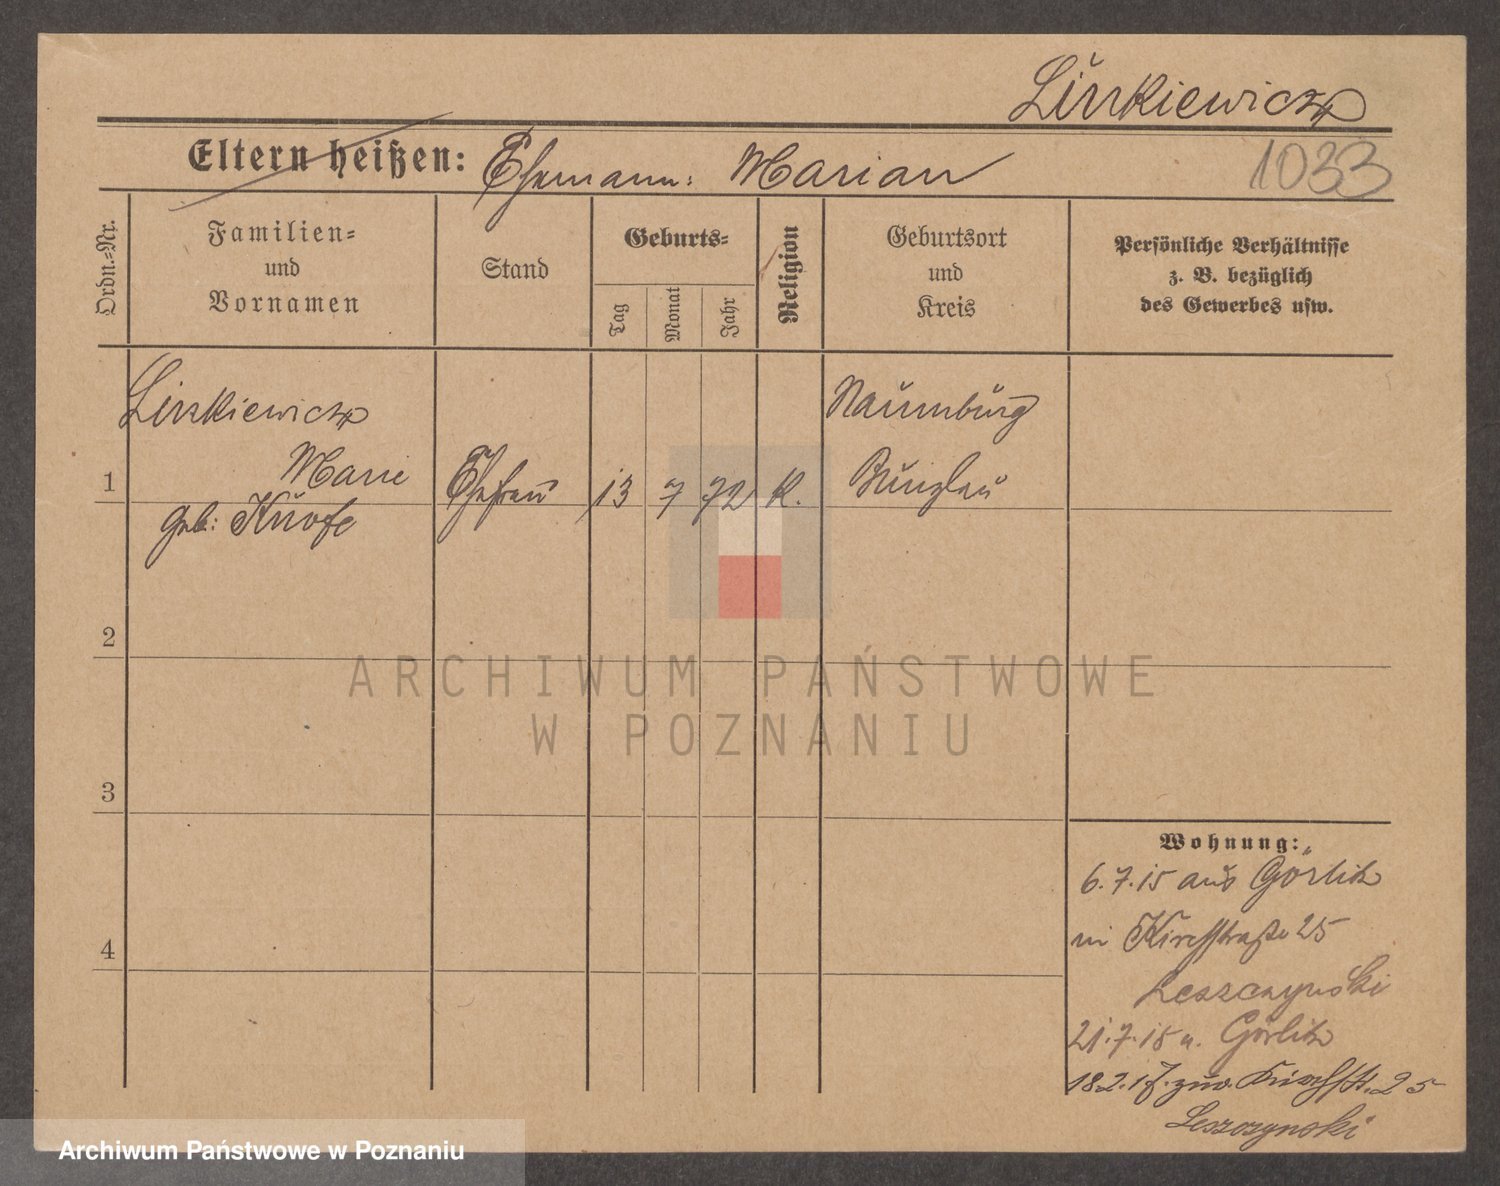 Linkiewicz
Eltern heißen: Ehemann: Marian
1033
Ordn.-Nr.
Familien-
und
Vornamen
Stand
Geburts-
Tag
Monat
Jahr
Religion
Geburtsort
und
Kreis
Persönliche Verhältnisse
z. B. bezüglich
des Gewerbes usw.
Linkiewicz
Marie
geb: Knofe
1
Ehefrau
13
7
72
K.
Naumburg
Bunzlau
2
3
4
Wohnung:
6.7.15 aus Görlitz
in Kirchstraße 25
Leszczynski
21.7.15 n. Görlitz
18.2.17. zur. Kirchst. 25
Leszczynski
ARCHIWUM PAŃSTWOWE
W POZNANIU
Archiwum Państwowe w Poznaniu